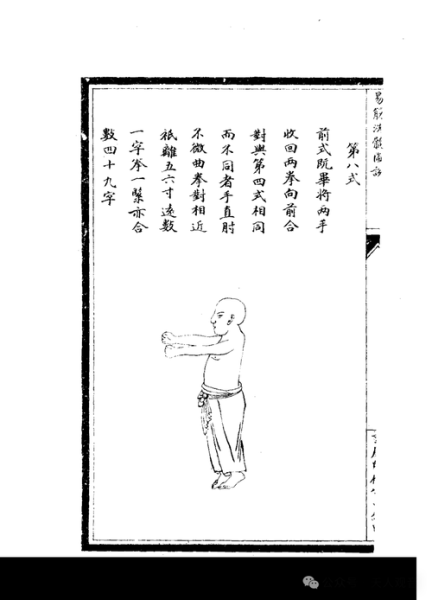 第八式
前式既畢將两手
收回两拳向前合
對與第四式相同
而不同者手直肘
不微曲拳對相近
祇離五六寸遠數
一字拳一緊亦合
數四十九字